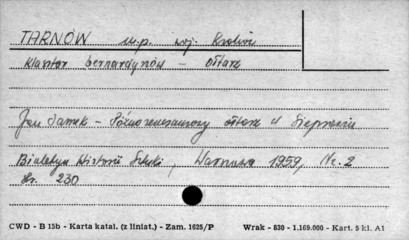 TARNÓW m.p. woj. Kraków
Klasztor bernardynów - ołtarz
Jan Samek - Późnorenesansowy ołtarz w Siepraniu
Biuletyn Historii Sztuki, Warszawa 1959, Nr. 2
str. 230
CWD - B 15b - Karta katal. (z liniat.) - Zam. 1625/P Wrak - 830 - 1.169.000 - Kart. 5 kl. A1